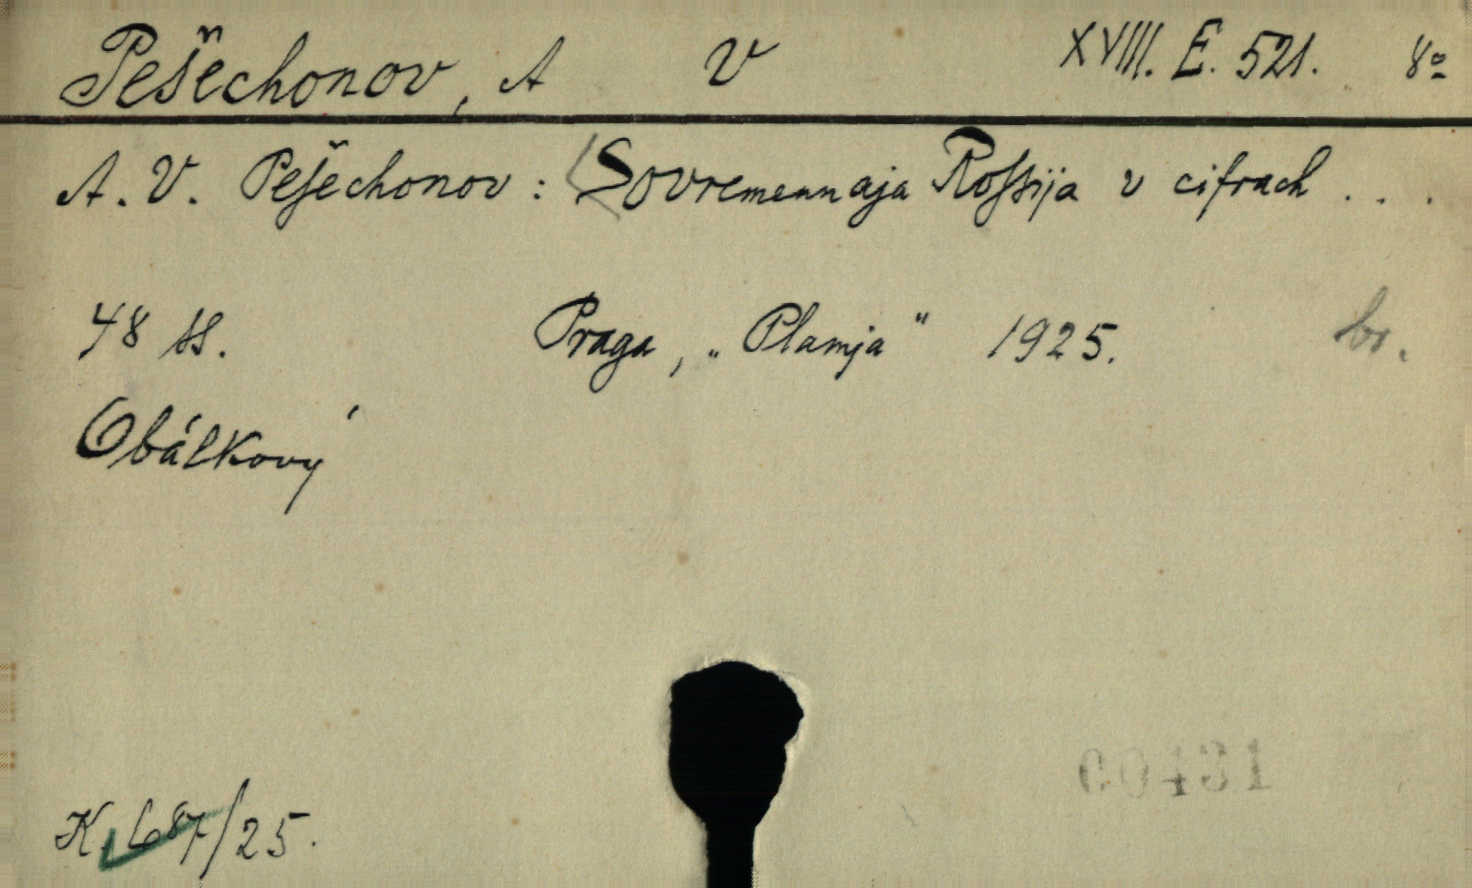 Pešechonov, A V XVIII. E. 521. 8º
A. V. Pešechonov: Sovremennaja Rossija v cifrach ...
48 ss. Praga, „Plamja" 1925. br.
Obálkový
K. 687/25.